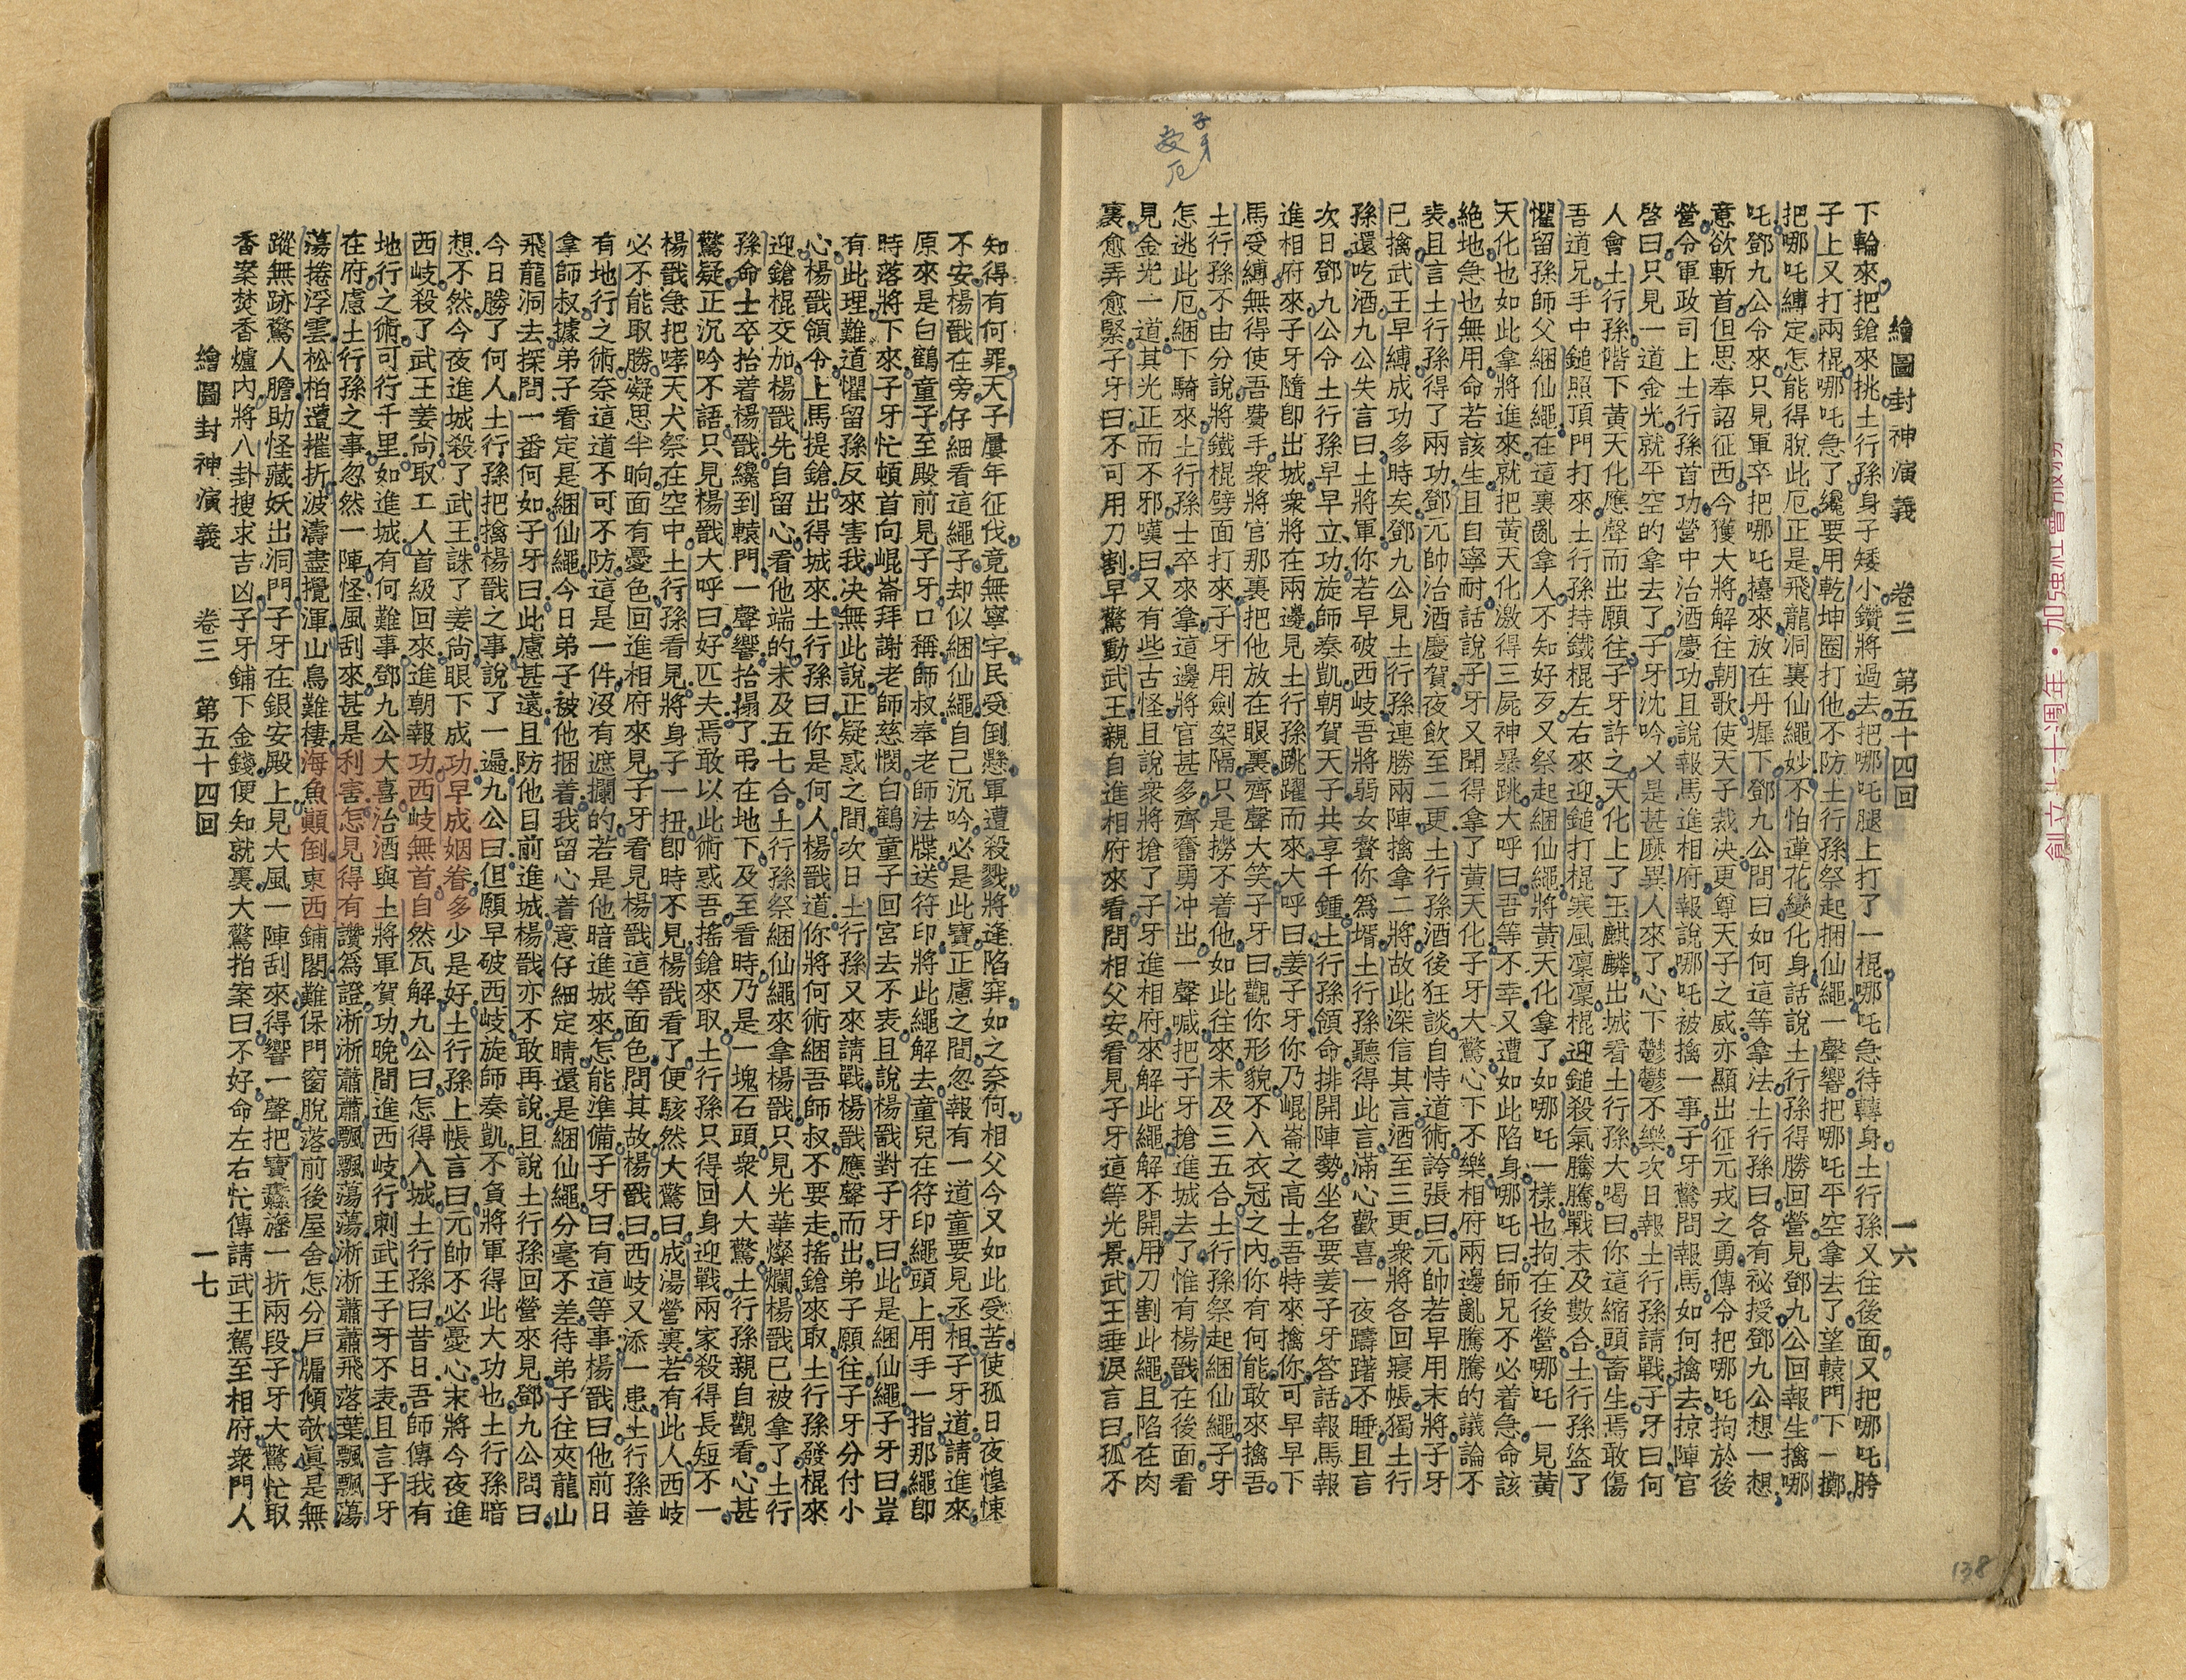 繪圖封神演義　卷三　第五十四回　一六
下輪來把鎗來挑土行孫身子矮小鑽將過去把哪吒腿上打了一棍哪吒急待轉身土行孫又往後面又把哪吒胯
子上又打兩棍哪吒急了纔要用乾坤圈打他不防土行孫祭起捆仙繩一聲響把哪吒平空拿去了望轅門下一擲
把哪吒縛定怎能得脫此厄正是飛龍洞裏仙繩妙不怕蓮花變化身話說土行孫得勝回營見鄧九公回報生擒哪
吒鄧九公令來只見軍卒把哪吒擡來放在丹墀下鄧九公問曰如何這等拿法土行孫曰各有秘授鄧九公想一想
意欲斬首但思奉詔征西今獲大將解往朝歌使天子裁决更尊天子之威亦顯出征元戎之勇傳令把哪吒拘於後
營令軍政司上土行孫首功營中治酒慶功且說報馬進相府報說哪吒被擒一事子牙驚問報馬如何擒去掠陣官
啓曰只見一道金光就平空的拿去了子牙沈吟又是甚麽異人來了心下鬱鬱不樂次日報土行孫請戰子牙曰何
人會土行孫階下黃天化應聲而出願往子牙許之天化上了玉麒麟出城看土行孫大喝曰你這縮頭畜生焉敢傷
吾道兄手中鎚照頂門打來土行孫持鐵棍左右來迎鎚打棍寒風凜凜棍迎鎚殺氣騰騰戰未及數合土行孫盜了
懼留孫師父綑仙繩在這裏亂拿人不知好歹又祭起綑仙繩將黃天化拿了如哪吒一樣也拘在後營哪吒一見黃
天化也如此拿將進來就把黃天化激得三屍神暴跳大呼曰吾等不幸又遭如此陷身哪吒曰師兄不必着急命該
絶地急也無用命若該生且自寧耐話說子牙又聞得拿了黃天化子牙大驚心下不樂相府兩邊亂騰騰的議論不
表且言土行孫得了兩功鄧元帥治酒慶賀夜飲至二更土行孫酒後狂談自恃道術誇張曰元帥若早用末將子牙
已擒武王早縛成功多時矣鄧九公見土行孫連勝兩陣擒拿二將故此深信其言酒至三更衆將各回寢帳獨土行
孫還吃酒九公失言曰土將軍你若早破西岐吾將弱女贅你爲壻土行孫聽得此言滿心歡喜一夜躊躇不睡且言
次日鄧九公令土行孫早早立功旋師奏凱朝賀天子共享千鍾土行孫領命排開陣勢坐名要姜子牙答話報馬報
進相府來子牙隨卽出城衆將在兩邊見土行孫跳躍而來大呼曰姜子牙你乃崐崙之高士吾特來擒你可早早下
馬受縛無得使吾費手衆將官那裏把他放在眼裏齊聲大笑子牙曰觀你形貌不入衣冠之內你有何能敢來擒吾
土行孫不由分說將鐵棍劈面打來子牙用劍架隔只是撈不着他如此往來未及三五合土行孫祭起綑仙繩子牙
怎逃此厄綑下騎來土行孫士卒來拿這邊將官甚多齊奮勇冲出一聲喊把子牙搶進城去了惟有楊戩在後面看
見金光一道其光正而不邪嘆曰又有些古怪且說衆將搶了子牙進相府來解此繩解不開用刀割此繩且陷在肉
裏愈弄愈緊子牙曰不可用刀割早驚動武王親自進相府來看問相父安看見子牙這等光景武王垂淚言曰孤不
子牙
受厄
138
知得有何罪天子屢年征伐竟無寧宇民受倒懸軍遭殺戮將逢陷穽如之奈何相父今又如此受苦使孤日夜惶悚
不安楊戩在旁仔細看這繩子却似綑仙繩自己沉吟必是此寶正慮之間忽報有一道童要見丞相子牙道請進來
原來是白鶴童子至殿前見子牙口稱師叔奉老師法牒送符印將此繩解去童兒在符印繩頭上用手一指那繩卽
時落將下來子牙忙頓首向崐崙拜謝老師慈憫白鶴童子回宮去不表且說楊戩對子牙曰此是綑仙繩子牙曰豈
有此理難道懼留孫反來害我决無此說正疑惑之間次日土行孫又來請戰楊戩應聲而出弟子願往子牙分付小
心楊戩領令上馬提鎗出得城來土行孫曰你是何人楊戩道你將何術綑吾師叔不要走搖鎗來取土行孫發棍來
迎鎗棍交加楊戩先自留心看他端的未及五七合土行孫祭綑仙繩來拿楊戩只見光華燦爛楊戩已被拿了土行
孫命士卒抬着楊戩纔到轅門一聲響抬搨了弔在地下及至看時乃是一塊石頭衆人大驚土行孫親自觀看心甚
驚疑正沉吟不語只見楊戩大呼曰好匹夫焉敢以此術惑吾搖鎗來取土行孫只得回身迎戰兩家殺得長短不一
楊戩急把哮天犬祭在空中土行孫看見將身子一扭卽時不見楊戩看了便駭然大驚曰成湯營裏若有此人西岐
必不能取勝凝思半晌面有憂色回進相府來見子牙看見楊戩這等面色問其故楊戩曰西岐又添一患土行孫善
有地行之術奈這道不可不防這是一件沒有遮攔的若是他暗進城來怎能準備子牙曰有這等事楊戩曰他前日
拿師叔據弟子看定是綑仙繩今日弟子被他捆着我留心着意仔細定睛還是綑仙繩分毫不差待弟子往夾龍山
飛龍洞去探問一番何如子牙曰此慮甚遠且防他目前進城楊戩亦不敢再說且說土行孫回營來見鄧九公問曰
今日勝了何人土行孫把擒楊戩之事說了一遍九公曰但願早破西岐旋師奏凱不負將軍得此大功也土行孫暗
想不然今夜進城殺了武王誅了姜尙眼下成功早成姻眷多少是好土行孫上帳言曰元帥不必憂心末將今夜進
西岐殺了武王姜尙取工人首級回來進朝報功西岐無首自然瓦解九公曰怎得入城土行孫曰昔日吾師傳我有
地行之術可行千里如進城有何難事鄧九公大喜治酒與土將軍賀功晚間進西岐行刺武王子牙不表且言子牙
在府慮土行孫之事忽然一陣怪風刮來甚是利害怎見得有讚爲證淅淅蕭蕭飄飄蕩蕩淅淅蕭蕭飛落葉飄飄蕩
蕩捲浮雲松柏遭摧折波濤盡攪渾山鳥難棲海魚顛倒東西鋪閣難保門窗脫落前後屋舍怎分戶牖傾欹眞是無
蹤無跡驚人膽助怪藏妖出洞門子牙在銀安殿上見大風一陣刮來得響一聲把寶纛旛一折兩段子牙大驚忙取
香案焚香爐內將八卦搜求吉凶子牙鋪下金錢便知就裏大驚拍案曰不好命左右忙傳請武王駕至相府衆門人
繪圖封神演義　卷三　第五十四回　一七